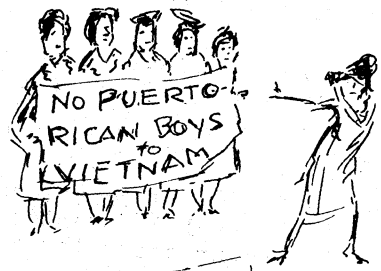 NO PUERTO-
RICAN BOYS
to
VIETNAM